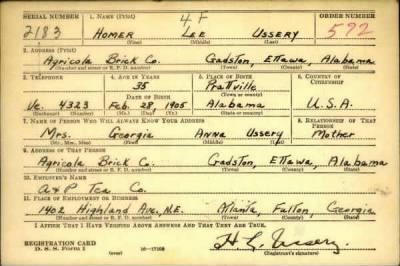 SERIAL NUMBER 1. NAME (Print) 4F ORDER NUMBER
2183 HOMER LEE USSERY 592
(First) (Middle) (Last)
2. ADDRESS (Print)
Agricola Brick Co. Gadston, Ettawa, Alabama
(Number and street or R. F. D. number) (Town) (County) (State)
3. TELEPHONE 4. AGE IN YEARS 5. PLACE OF BIRTH 6. COUNTRY OF CITIZENSHIP
35 Prattville
DATE OF BIRTH (Town or county)
Ve. 4323 Feb. 28, 1905 Alabama U.S.A.
(Mo.) (Day) (Yr.) (State or country)
7. NAME OF PERSON WHO WILL ALWAYS KNOW YOUR ADDRESS 8. RELATIONSHIP OF THAT PERSON
Mrs. Georgia Anna Ussery Mother
(Mr., Mrs., Miss) (First) (Middle) (Last)
9. ADDRESS OF THAT PERSON
Agricola Brick Co. Gadston, Ettawa, Alabama
(Number and street or R. F. D. number) (Town) (County) (State)
10. EMPLOYER'S NAME
A&P Tea Co.
11. PLACE OF EMPLOYMENT OR BUSINESS
1402 Highland Ave., N.E. Atlanta, Fulton, Georgia
(Number and street or R. F. D. number) (Town) (County) (State)
I AFFIRM THAT I HAVE VERIFIED ABOVE ANSWERS AND THAT THEY ARE TRUE.
REGISTRATION CARD
D. S. S. Form 1 16—17105 H L Ussery
(Registrant's signature)